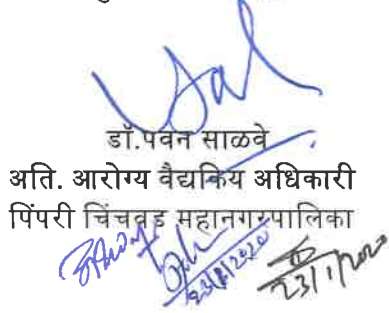 डॉ.पवन साळवे
अति. आरोग्य वैद्यकिय अधिकारी
पिंपरी चिंचवड महानगरपालिका
23/1/2020
23/1/2020